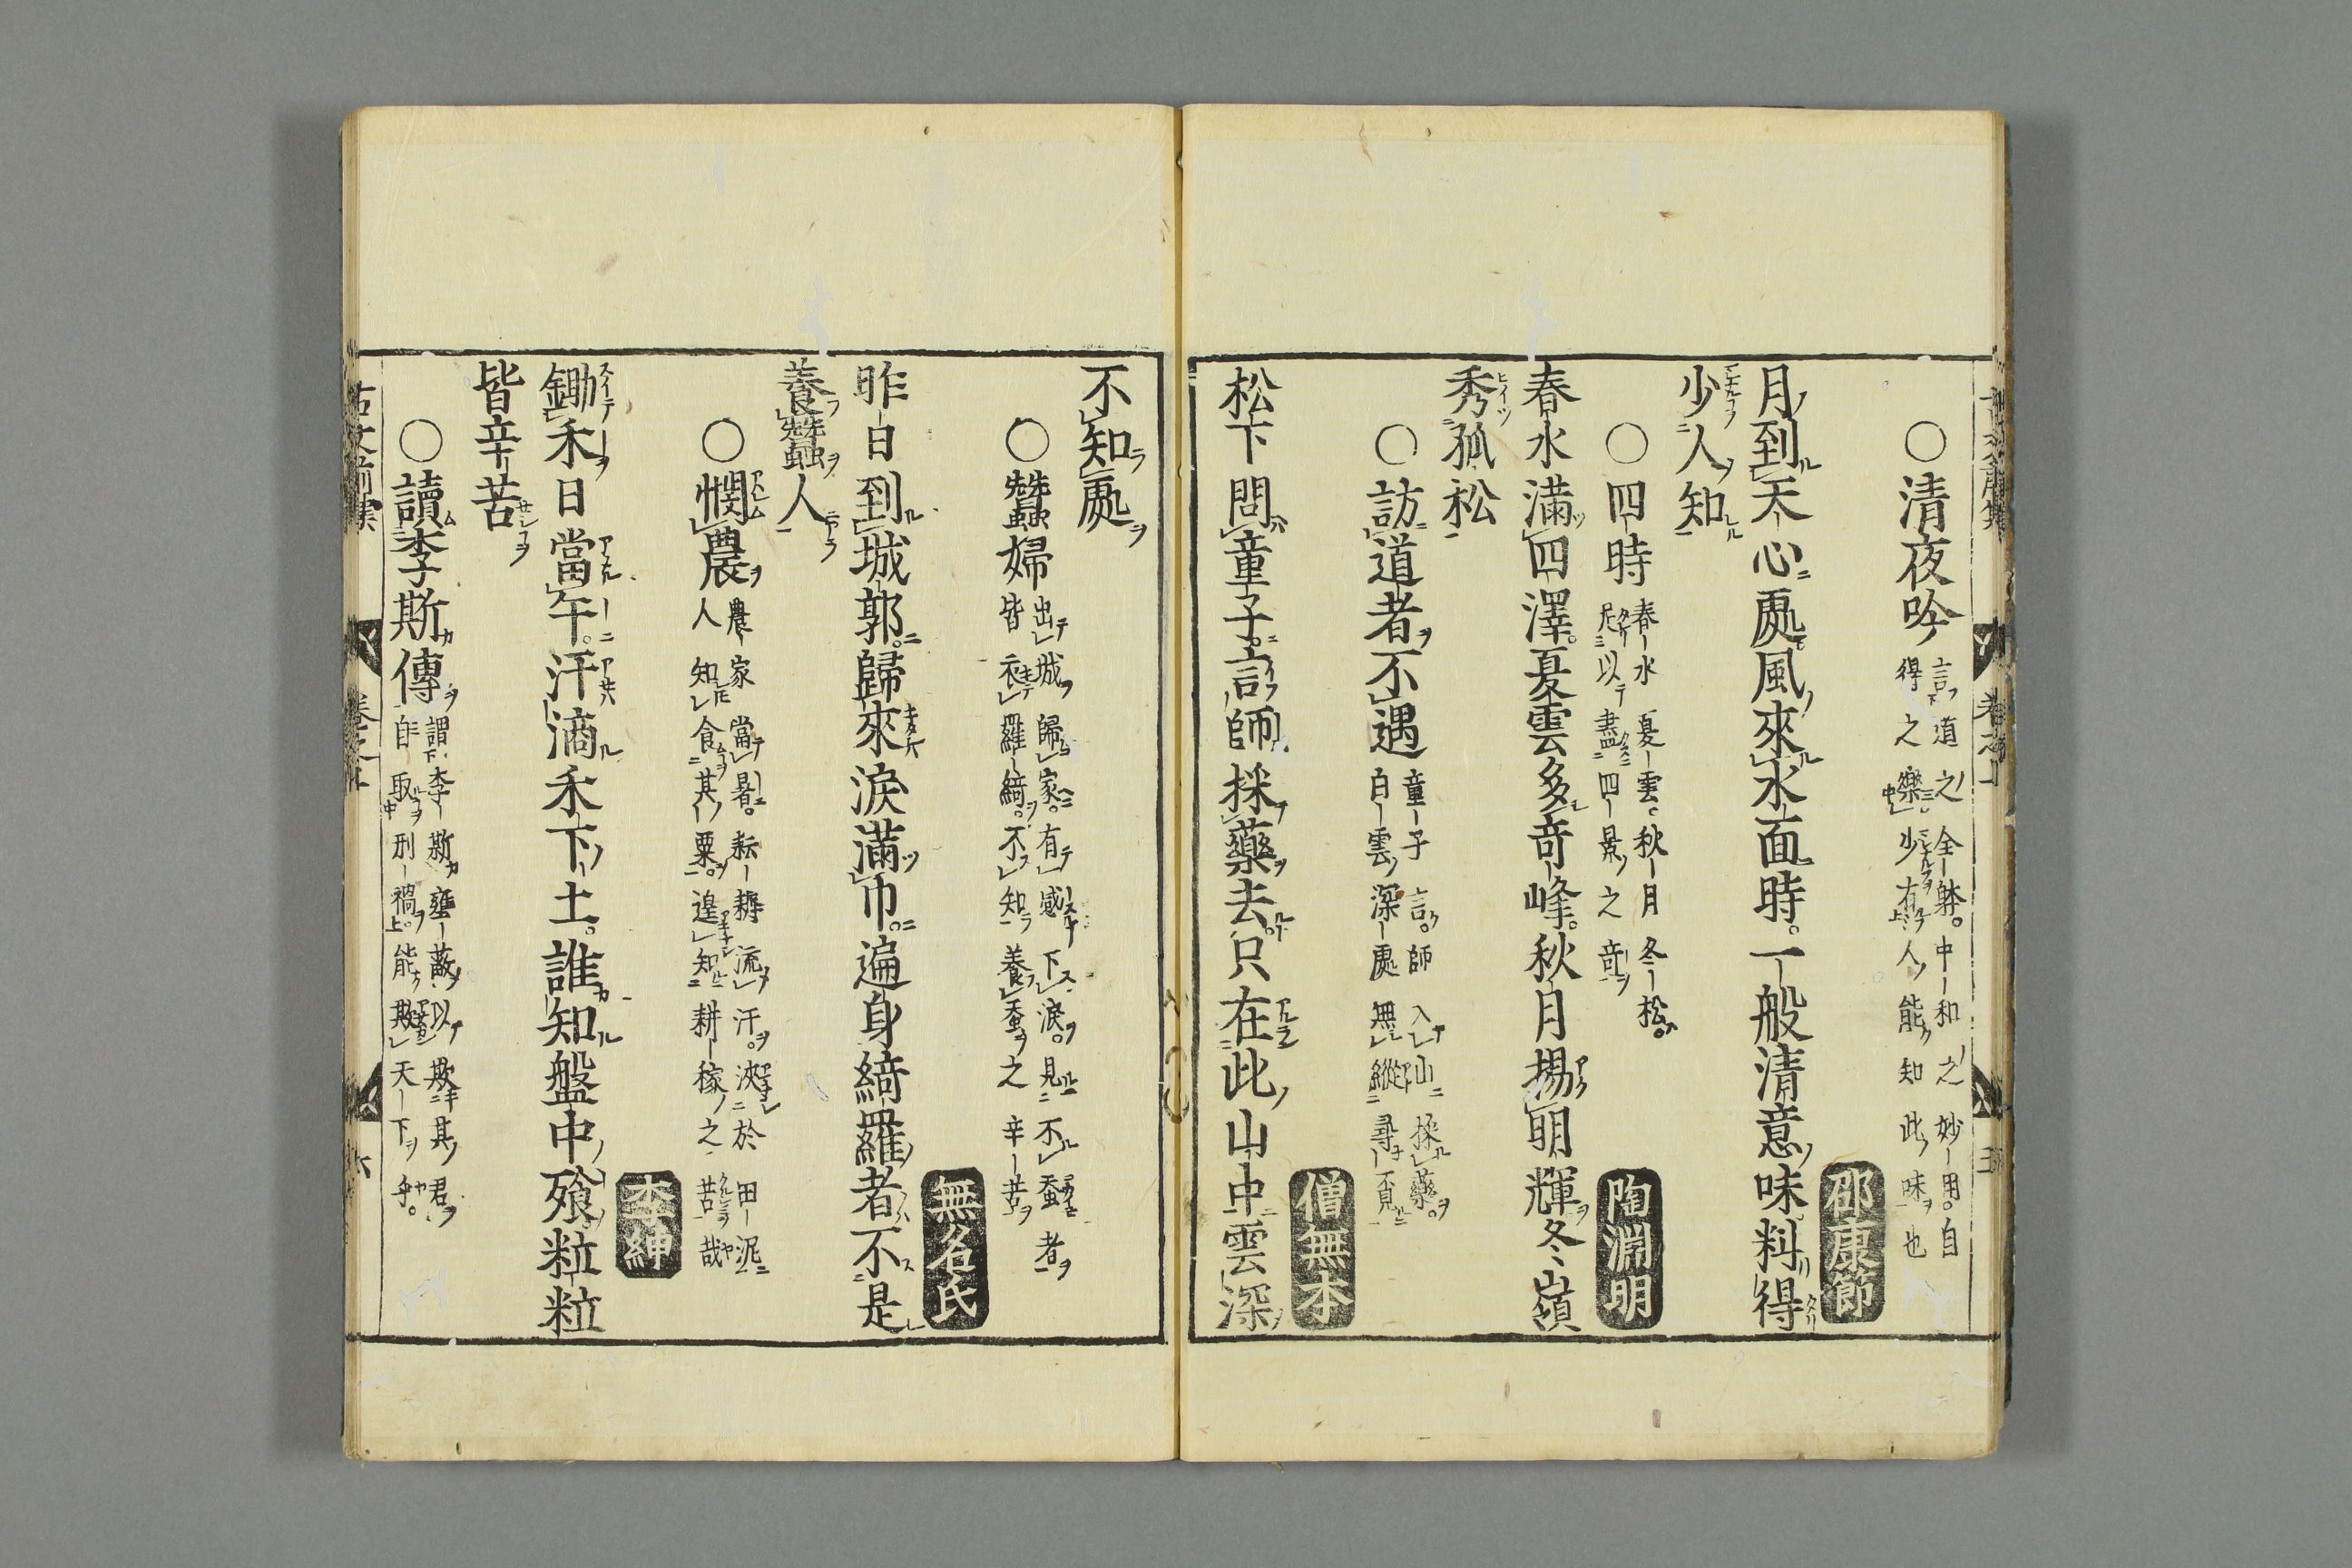 ○清夜吟 言道之全躰。中和之妙用。自
得之樂少有人能知此味也
邵康節
月到天心處風來水面時。一般清意味料得
少人知
○四時 春水夏雲。秋月冬松。
足以盡四景之竒
陶淵明
春水滿四澤。夏雲多竒峰。秋月揚明輝冬嶺
秀孤松
○訪道者不遇 童子言。師入山採藥。
白雲深處無縱尋覓
僧無本
松下問童子。言師採藥去。只在此山中雲深
不知處
○蠶婦 出城歸家。有感下淚。見不蚕者
皆衣羅綺。不知養蚕之辛苦
無名氏
昨日到城郭。歸來淚滿巾。遍身綺羅者不是
養蠶人
○憫農 農家當暑。耘耨流汗。浹於田泥
人知食其粟。遑知耕稼之苦哉
李紳
鋤禾日當午。汗滴禾下土。誰知盤中飱。粒粒
皆辛苦
○讀李斯傳 謂李斯壅蔽以欺其君
自取刑禍。能欺天下乎。
古文前集
卷之上
六